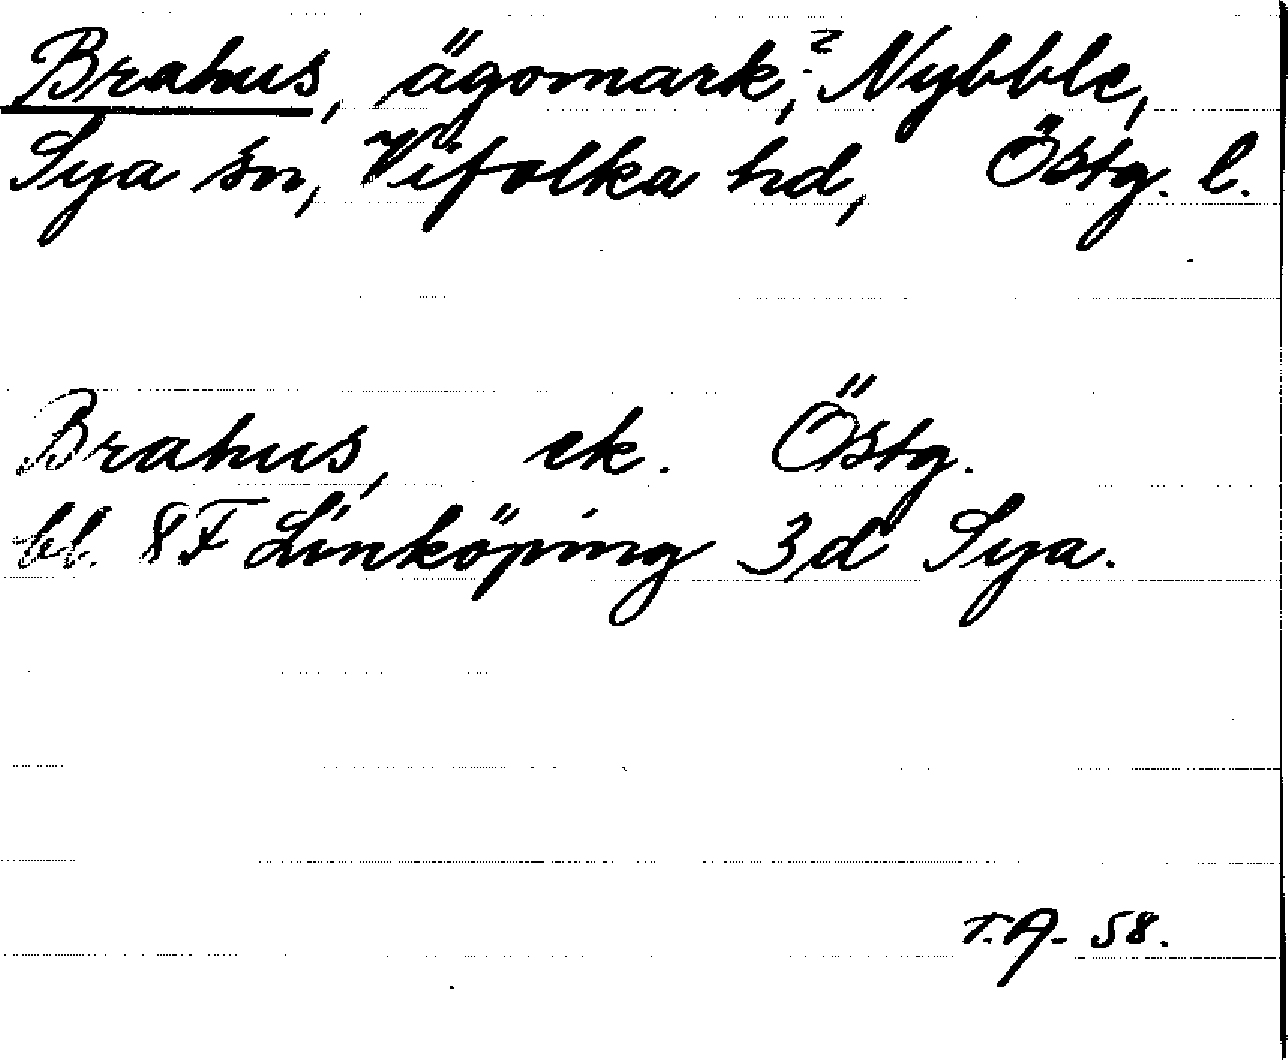 Brahus, ägomark,? Nybble,
Sya sn, Vifolka hd, Östg. l.
Brahus, ek. Östg.
bl. 8F Linköping 3d Sya.
T.A- 58.